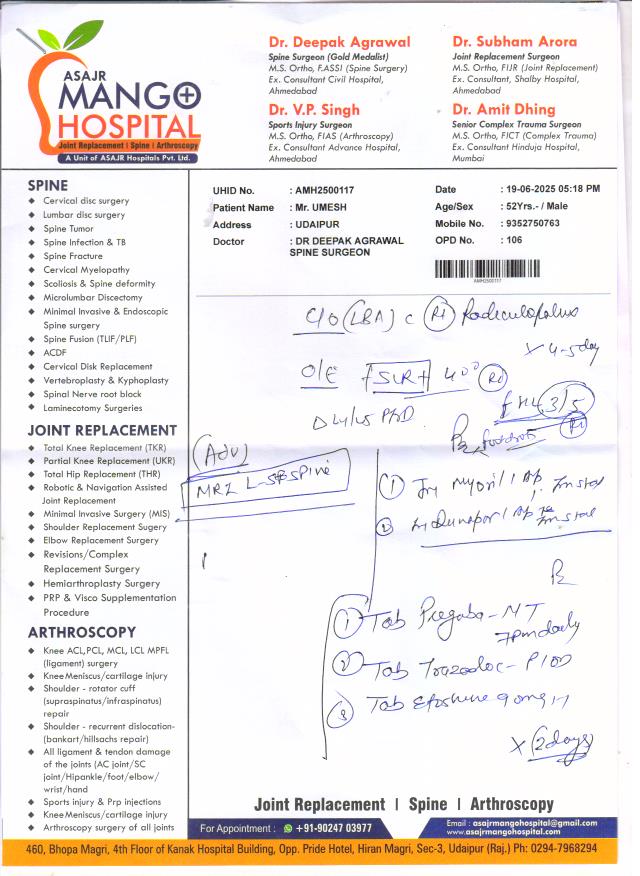 ASAJR
MANGO
HOSPITAL
Joint Replacement | Spine | Arthroscopy
A Unit of ASAJR Hospitals Pvt. Ltd.
Dr. Deepak Agrawal
Spine Surgeon (Gold Medalist)
M.S. Ortho, F.ASSI (Spine Surgery)
Ex. Consultant Civil Hospital,
Ahmedabad
Dr. Subham Arora
Joint Replacement Surgeon
M.S. Ortho, FIJR (Joint Replacement)
Ex. Consultant, Shalby Hospital,
Ahmedabad
Dr. V.P. Singh
Sports Injury Surgeon
M.S. Ortho, FIAS (Arthroscopy)
Ex. Consultant Advance Hospital,
Ahmedabad
Dr. Amit Dhing
Senior Complex Trauma Surgeon
M.S. Ortho, FICT (Complex Trauma)
Ex. Consultant Hinduja Hospital,
Mumbai
UHID No. : AMH2500117
Patient Name : Mr. UMESH
Address : UDAIPUR
Doctor : DR DEEPAK AGRAWAL
SPINE SURGEON
Date : 19-06-2025 05:18 PM
Age/Sex : 52Yrs.- / Male
Mobile No. : 9352750763
OPD No. : 106
AMH2500117
SPINE
Cervical disc surgery
Lumbar disc surgery
Spine Tumor
Spine Infection & TB
Spine Fracture
Cervical Myelopathy
Scoliosis & Spine deformity
Microlumbar Discectomy
Minimal Invasive & Endoscopic
Spine surgery
Spine Fusion (TLIF/PLF)
ACDF
Cervical Disk Replacement
Vertebroplasty & Kyphoplasty
Spinal Nerve root block
Laminectomy Surgeries
JOINT REPLACEMENT
Total Knee Replacement (TKR)
Partial Knee Replacement (UKR)
Total Hip Replacement (THR)
Robotic & Navigation Assisted
Joint Replacement
Minimal Invasive Surgery (MIS)
Shoulder Replacement Sugery
Elbow Replacement Surgery
Revisions/Complex
Replacement Surgery
Hemiarthroplasty Surgery
PRP & Visco Supplementation
Procedure
ARTHROSCOPY
Knee ACL,PCL, MCL, LCL MPFL
(ligament) surgery
Knee Meniscus/cartilage injury
Shoulder - rotator cuff
(supraspinatus/infraspinatus)
repair
Shoulder - recurrent dislocation-
(bankart/hillsachs repair)
All ligament & tendon damage
of the joints (AC joint/SC
joint/Hipankle/foot/elbow/
wrist/hand
Sports injury & Prp injections
Knee Meniscus/cartilage injury
Arthroscopy surgery of all joints
C/O (LBA) c (Rt)
x 4-5 day
O/E SLR+ 40° (Rt)
3/5
(Rt)
(Adv)
MRI L-S Spine
(1) Inj Myoril 1 Ap
(2) Inj 1 Ap
Rx
(1) Tab Pregaba-NT
7pm daily
(2) Tab
(3) Tab 90mg
x (2 days)
Joint Replacement | Spine | Arthroscopy
For Appointment : +91-90247 03977
Email : asajrmangohospital@gmail.com
www.asajrmangohospital.com
460, Bhopa Magri, 4th Floor of Kanak Hospital Building, Opp. Pride Hotel, Hiran Magri, Sec-3, Udaipur (Raj.) Ph: 0294-7968294